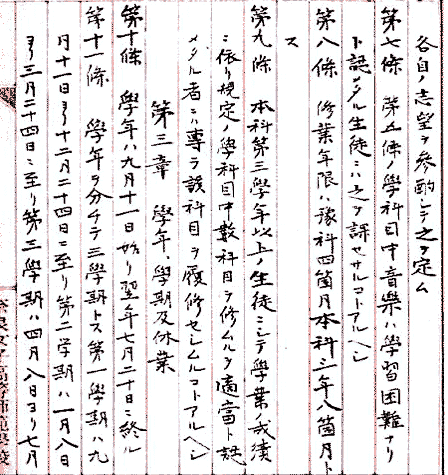 各自ノ志望ヲ參酌シテ之ヲ定ム
第七條 第五條ノ學科目中音樂ハ學習困難ナリ
ト認メタル生徒ニハ之ヲ課セサルコトアルヘシ
第八條 修業年限ハ豫科四箇月本科三年八箇月ト
ス
第九條 本科第三學年以上ノ生徒ニシテ學業ノ成績
ニ依リ規定ノ學科目中數科目ヲ修ムルヲ適當ト認
メタル者ニハ專ラ該科目ヲ履修セシムルコトアルヘシ
第三章 學年、學期及休業
第十條 學年ハ九月十一日ニ始リ翌年七月二十日ニ終ル
第十一條 學年ヲ分チテ三學期トス第一學期ハ九
月十一日ヨリ十二月二十四日ニ至リ第二学期ハ一月八日
ヨリ三月二十四日ニ至リ第三學期ハ四月八日ヨリ七月
奈良女子高等師範學校